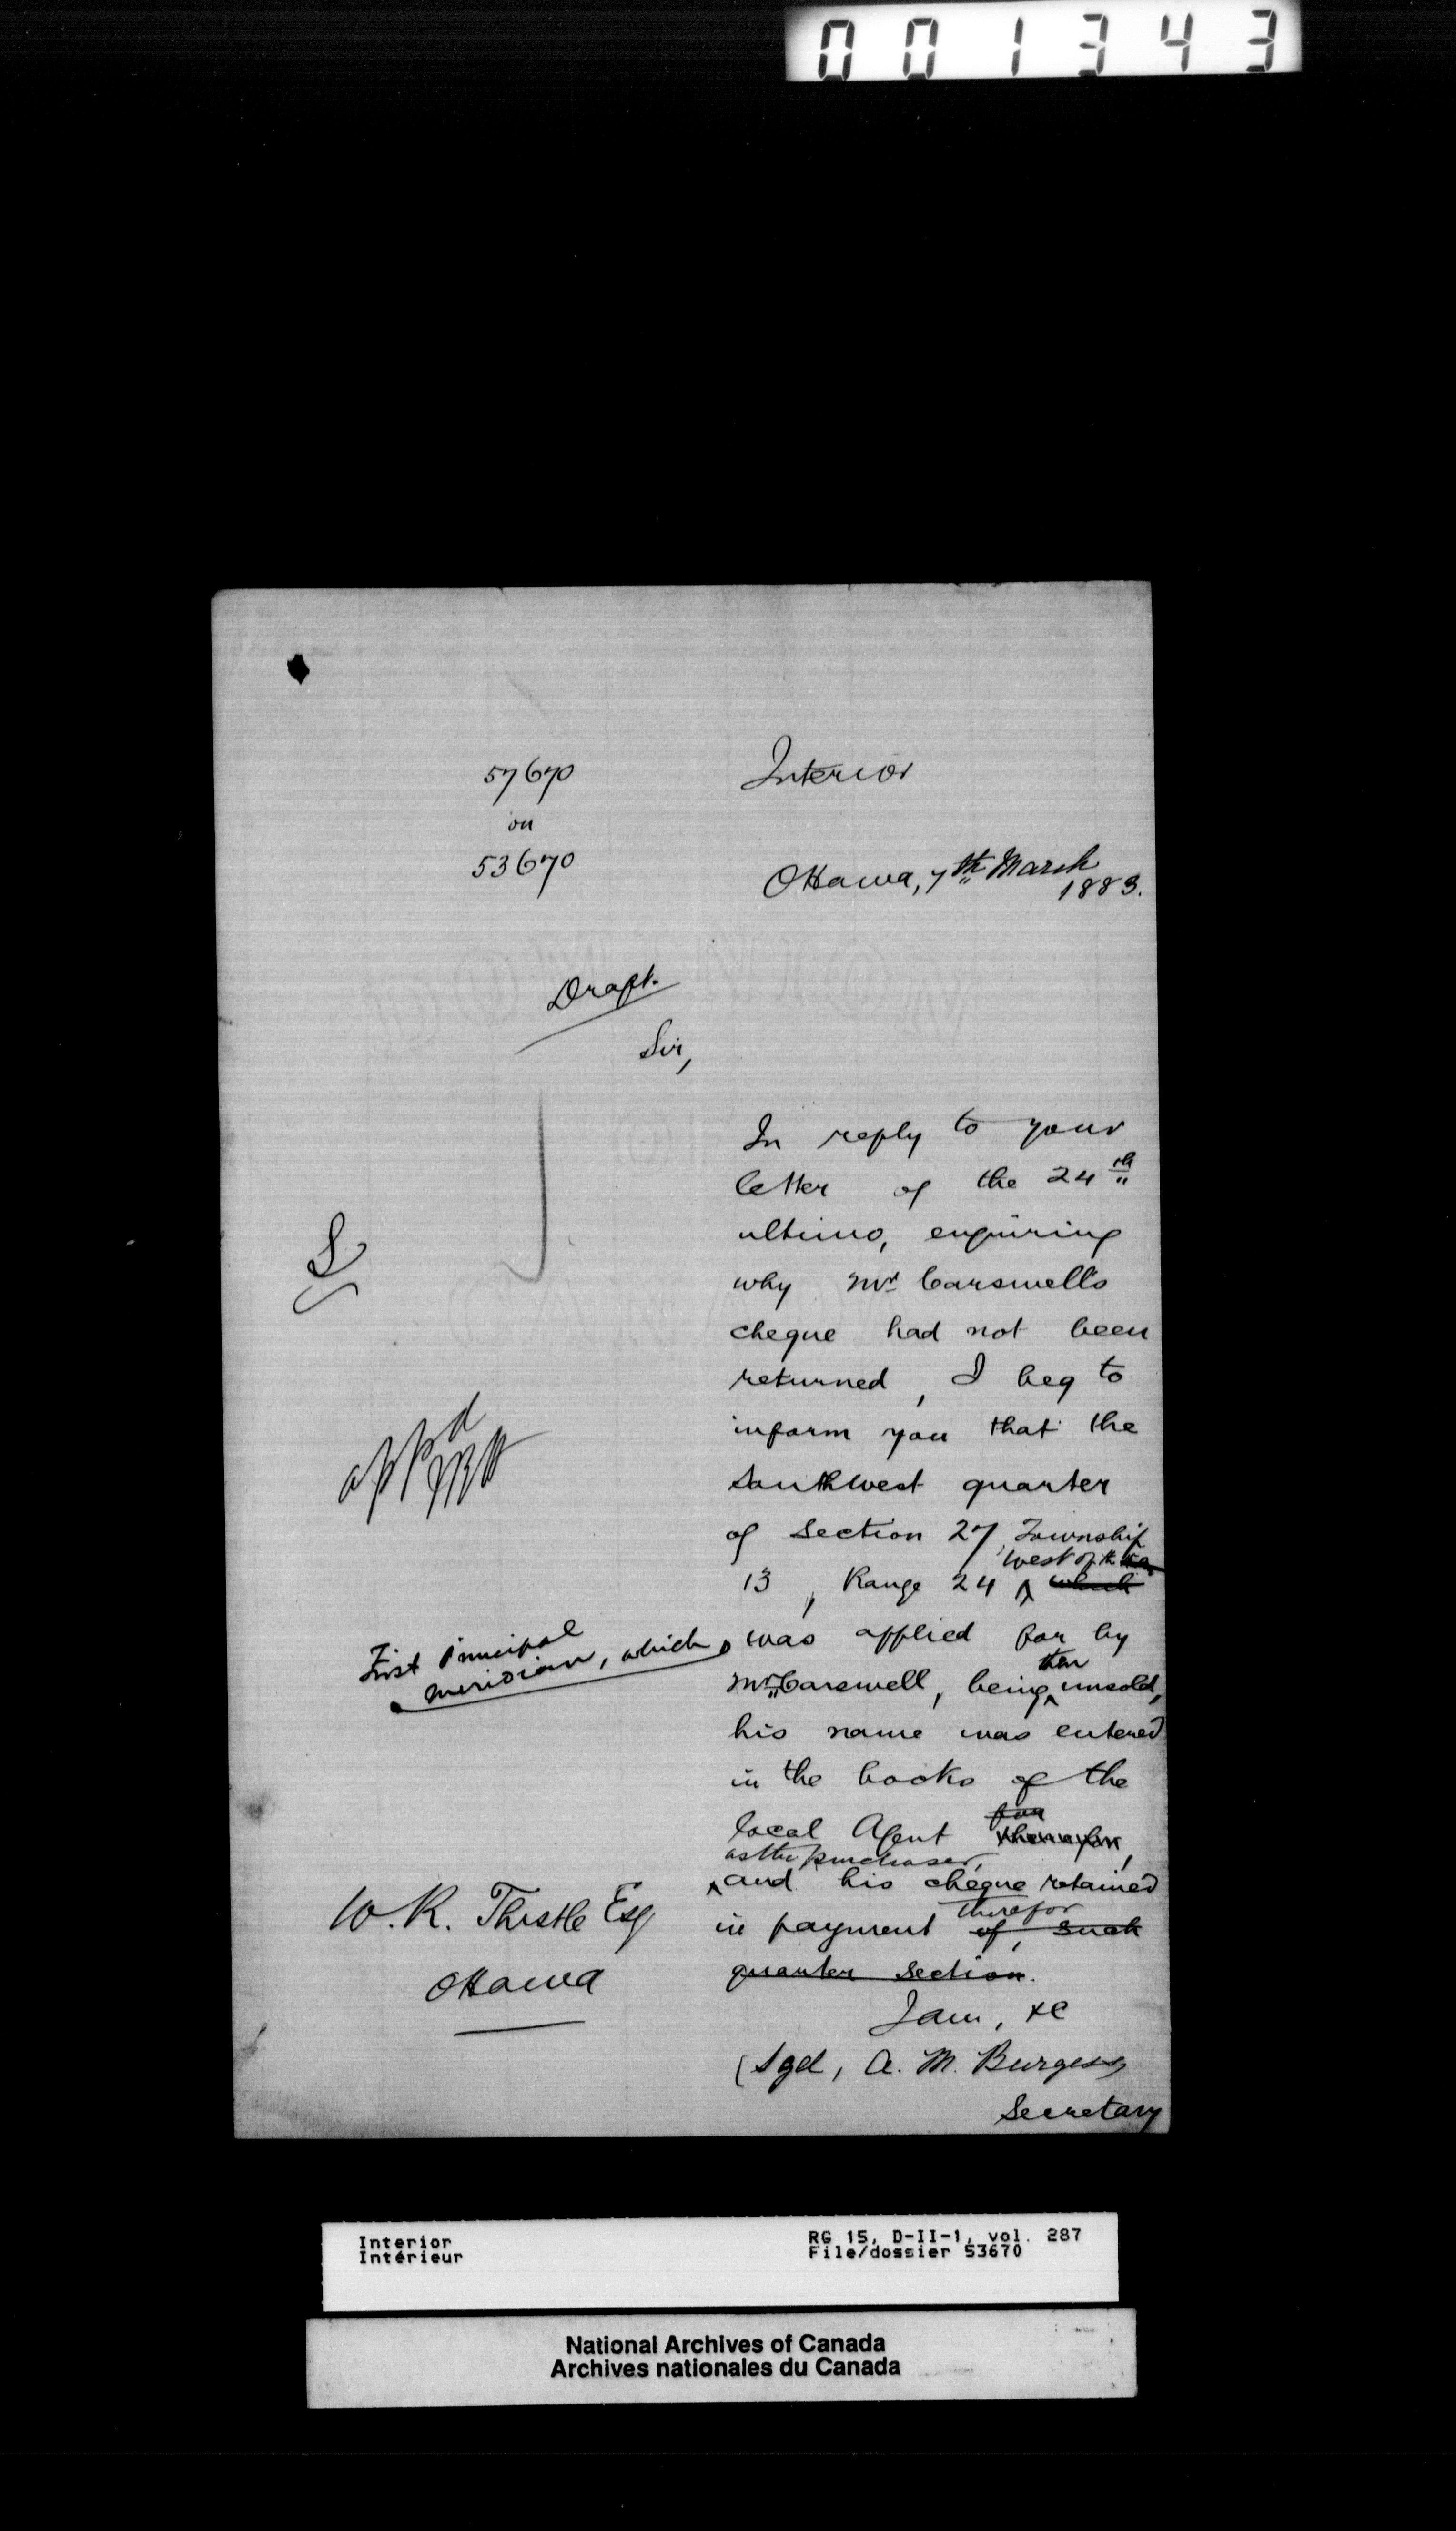 001343
57670
on
53670
Interior
Ottawa, 7th March
1883.
Draft.
Sir,
In reply to your
letter of the 24th
ultimo, enquiring
why Mr Carswell's
cheque had not been
returned, I beg to
inform you that the
Southwest quarter
of Section 27, Township
west of the
13, Range 24 ^ which
First Principal
Meridian, which
was applied for by
then
Mr Carswell, being ^ unsold,
his name was entered
in the books of the
for
local Agent
as the purchaser,
^ and his cheque retained
therefor
in payment of, such
quarter section.
I am, &c
(Sgd, A. M. Burgess
Secretary
appd
W. R. Thistle Esq
Ottawa
Interior
Intérieur
RG 15, D-II-1, vol. 287
File/dossier 53670
National Archives of Canada
Archives nationales du Canada